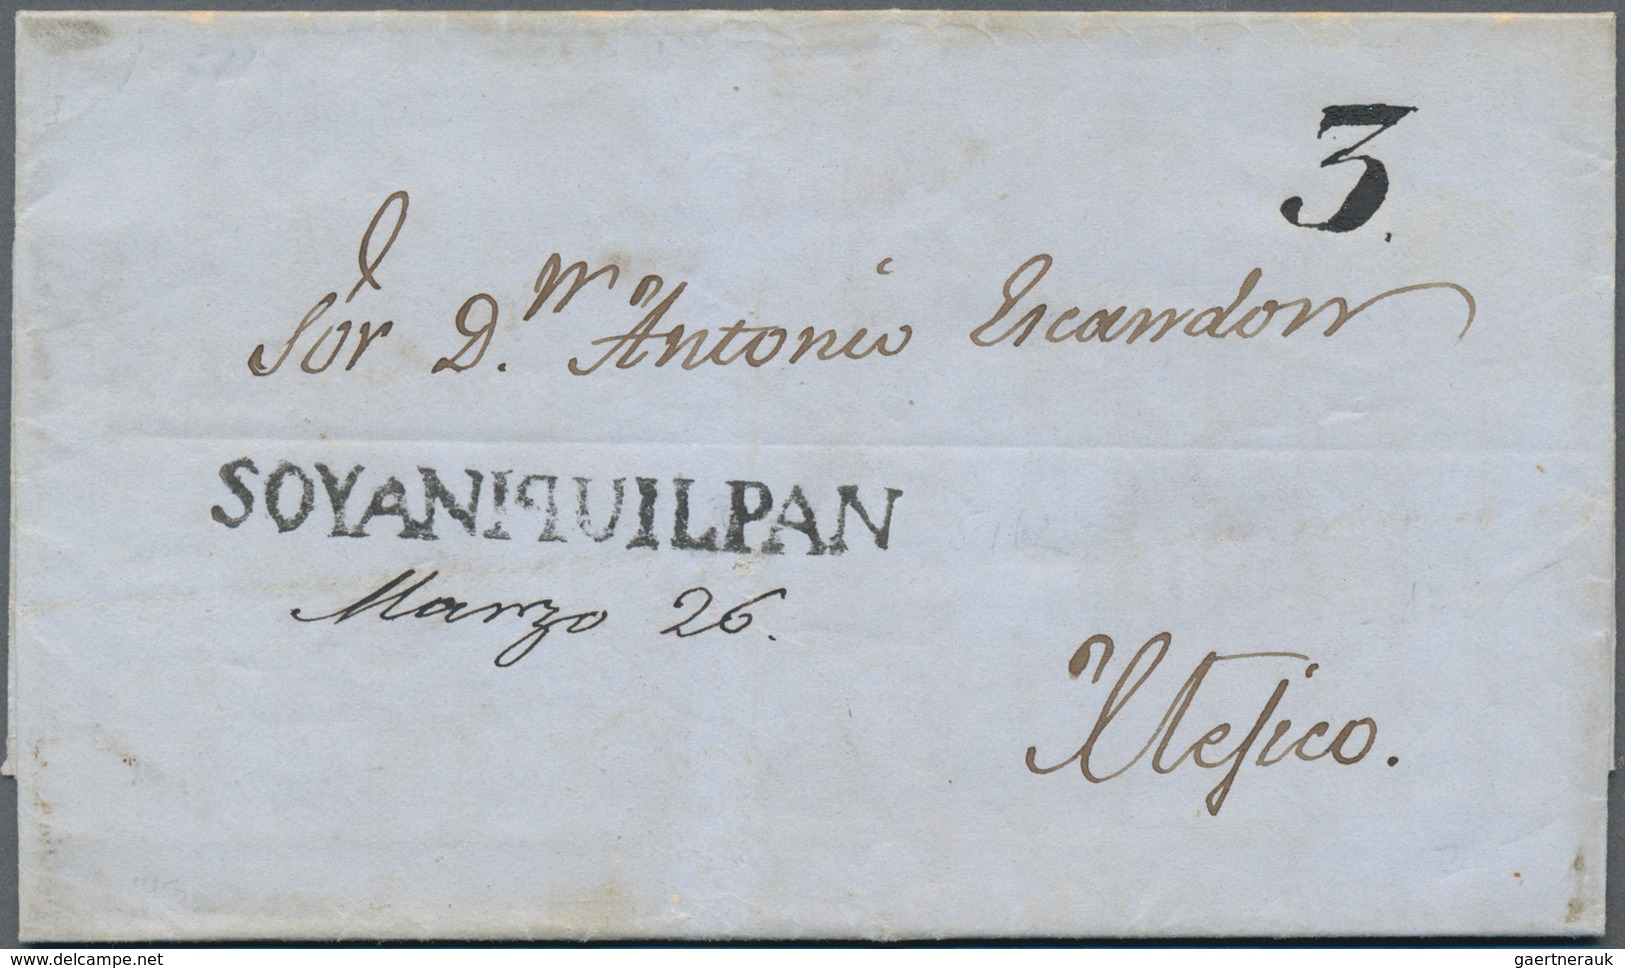 3.
Sor D.n Antonio Escandon
SOYANIQUILPAN
Marzo 26.
Mejico.
www.delcampe.net
gaertnerauk